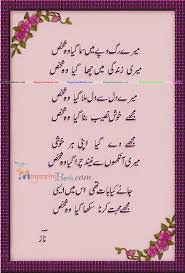 میرے رگ و پے میں سما گیا وہ شخص
میری زندگی میں چھا گیا وہ شخص
میرے دل سے دل ملا گیا وہ شخص
مجھے خوش نصیب بنا گیا وہ شخص
مجھے دے گیا اپنی ہر خوشی
میری آنکھوں سے نیند چرا گیا وہ شخص
جانے کیا بات تھی اس میں ایسی
مجھے محبت کرنا سکھا گیا وہ شخص